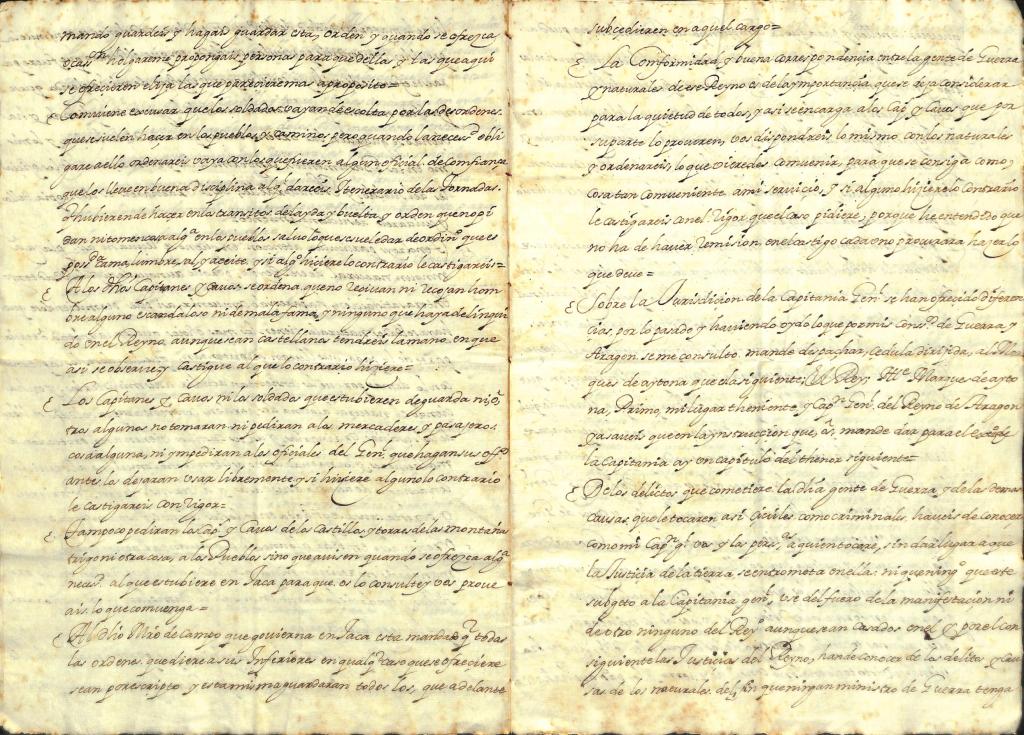 mando guardeis y hagais guardar esta orden y quando se ofrezca
ocass.n holgareme propongais personas para que dellas y las que aqui
se ofrecieren elija las que pareciere mas a proposito=
Comviene escusar que los soldados vayan de escolta por las desordenes
que suelen hacer en los pueblos, y caminos, pero quando la necess.d obli
gare a ello ordenareis vaya con los que fueren algun oficial de comfiança
que los lleve en buena disciplina al q.l dareis Itenerario de las Jornadas
q hubieren de hacer en los transitos de la yda y buelta, y orden que no pi
dan ni tomen cosa alg.a en los pueblos salvo lo que se suele dar de ordin.o que es
cama, lumbre, sal, y aceite, y si alg.o hiciere lo contrario le castigareis=
A los dhos Capitanes y Cavos se ordena, que no recivan ni recojan hom
bre alguno escandaloso ni de mala fama, y ninguno que haya delinqui
do en el Reyno, aunque sean castellanos tendreis la mano en que
asi se observe y castigue al que lo contrario hiziere=
Los Capitanes y Cavos ni los soldados que estubieren de guarda ni o
tros algunos no tomaran ni pediran a los mercaderes y pasajeros
cosa alguna, ni ympediran a los oficiales del Gen.l que hagan sus off.os
ante los dejaran usar libremente y si hiciere alguno lo contrario
le castigareis con rigor=
Tampoco pediran los Cap.s y Cavos de los Castillos y torres de las montañas
trigo ni otra cosa, a los Pueblos sino que avisen quando se ofrezca alg.a
neces.d al que estubiere en Jaca para que os lo consulte y vos provea
ais lo que comvenga=
Al dho Mro de campo que govierna en Jaca esta mandado q todas
las ordenes que diere a sus Inferiores en qualq.r caso que se ofreciere
sean por escripto, y esta misma guardaran todos los que adelante
subcedieren en aquel cargo=
La Comformidad, y buena correspondencia entre la gente de Guerra
y naturales de ese Reyno es de la ymportancia que se deja considerar
para la quietud de todos, y asi se encarga a los Cap.s y Cavos que por
su parte lo procuren, vos dispondreis lo mismo con los naturales
y ordenareis lo que vieredes comvenir, para que se consiga como
cosa tan comveniente a mi servicio, y si alguno hiziere lo contrario
le castigareis con el rigor que el caso pidiere, porque he entendido que
no ha de haver remision en el castigo cada uno procurara hazer lo
que deve=
Sobre la Jurisdicion de la Capitania Gen.l se han ofrecido diferen
cias, por lo pasado y haviendo oydo lo que por mis Cons.os de Guerra y
Aragon se me consulto mande despachar, cedula dirijida, al Mar
ques de aytona que es la siguiente; El Rey, Marques de ayto
na, Primo, mi lugar theniente, y Cap.n Gen.l del Reyno de Aragon
ya saveis que en la ynstruccion que, os, mande dar para el
la Capitania ay un capitulo del thenor siguiente=
De los delictos que cometiere la dha gente de Guerra y de las demas
causas que le tocaren asi civiles como criminales, haveis de conocer
como mi Cap.n g.l vos y las pers.as a quien tocare, sin dar lugar a que
la Justicia de la tierra se entrometa en ella: ni que ning.o que este
subgeto a la Capitania gen.l use del fuero de la manifestacion ni
de otro ninguno del Rey.o aunque sean casados en el y por el con
siguiente las Justicias del Reyno, han de conocer de los delitos y Cau
sas de los naturales del, sin que ningun ministro de Guerra tenga